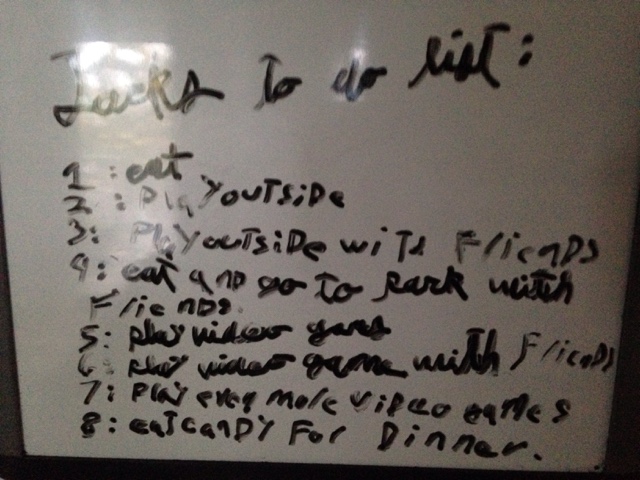 Jacks to do list:
1: eat
2: Play outside
3: Play outside with Friends
4: eat and go to park with
Friends.
5: play video games
6: play video game with Friends
7: Play even more video games
8: eat candy For Dinner.